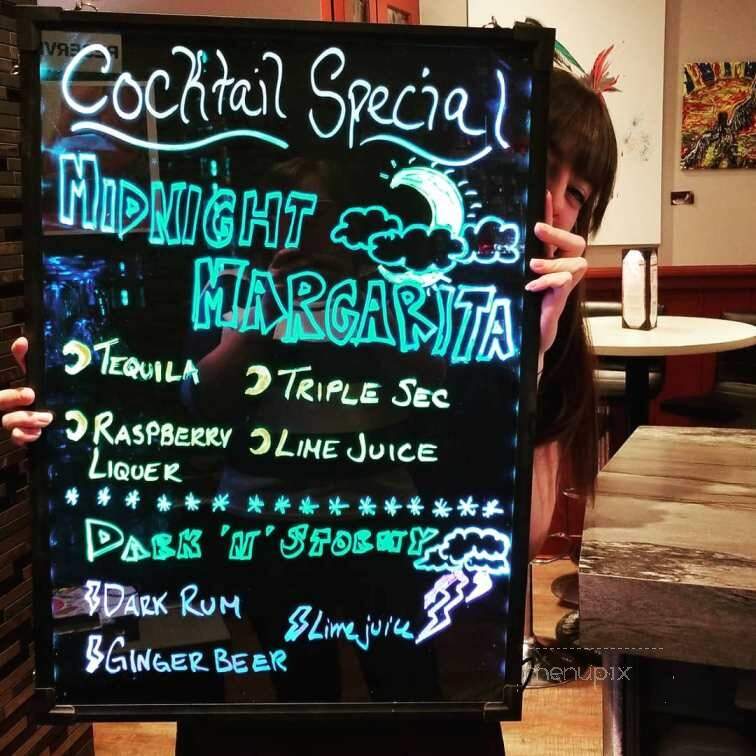 Cocktail Special
MIDNIGHT
MARGARITA
TEQUILA
TRIPLE SEC
RASPBERRY
LIQUER
LIME JUICE
* * * * * * * * * * * * * * * * * *
DARK 'N' STORMY
DARK RUM
Lime juice
GINGER BEER
menupix